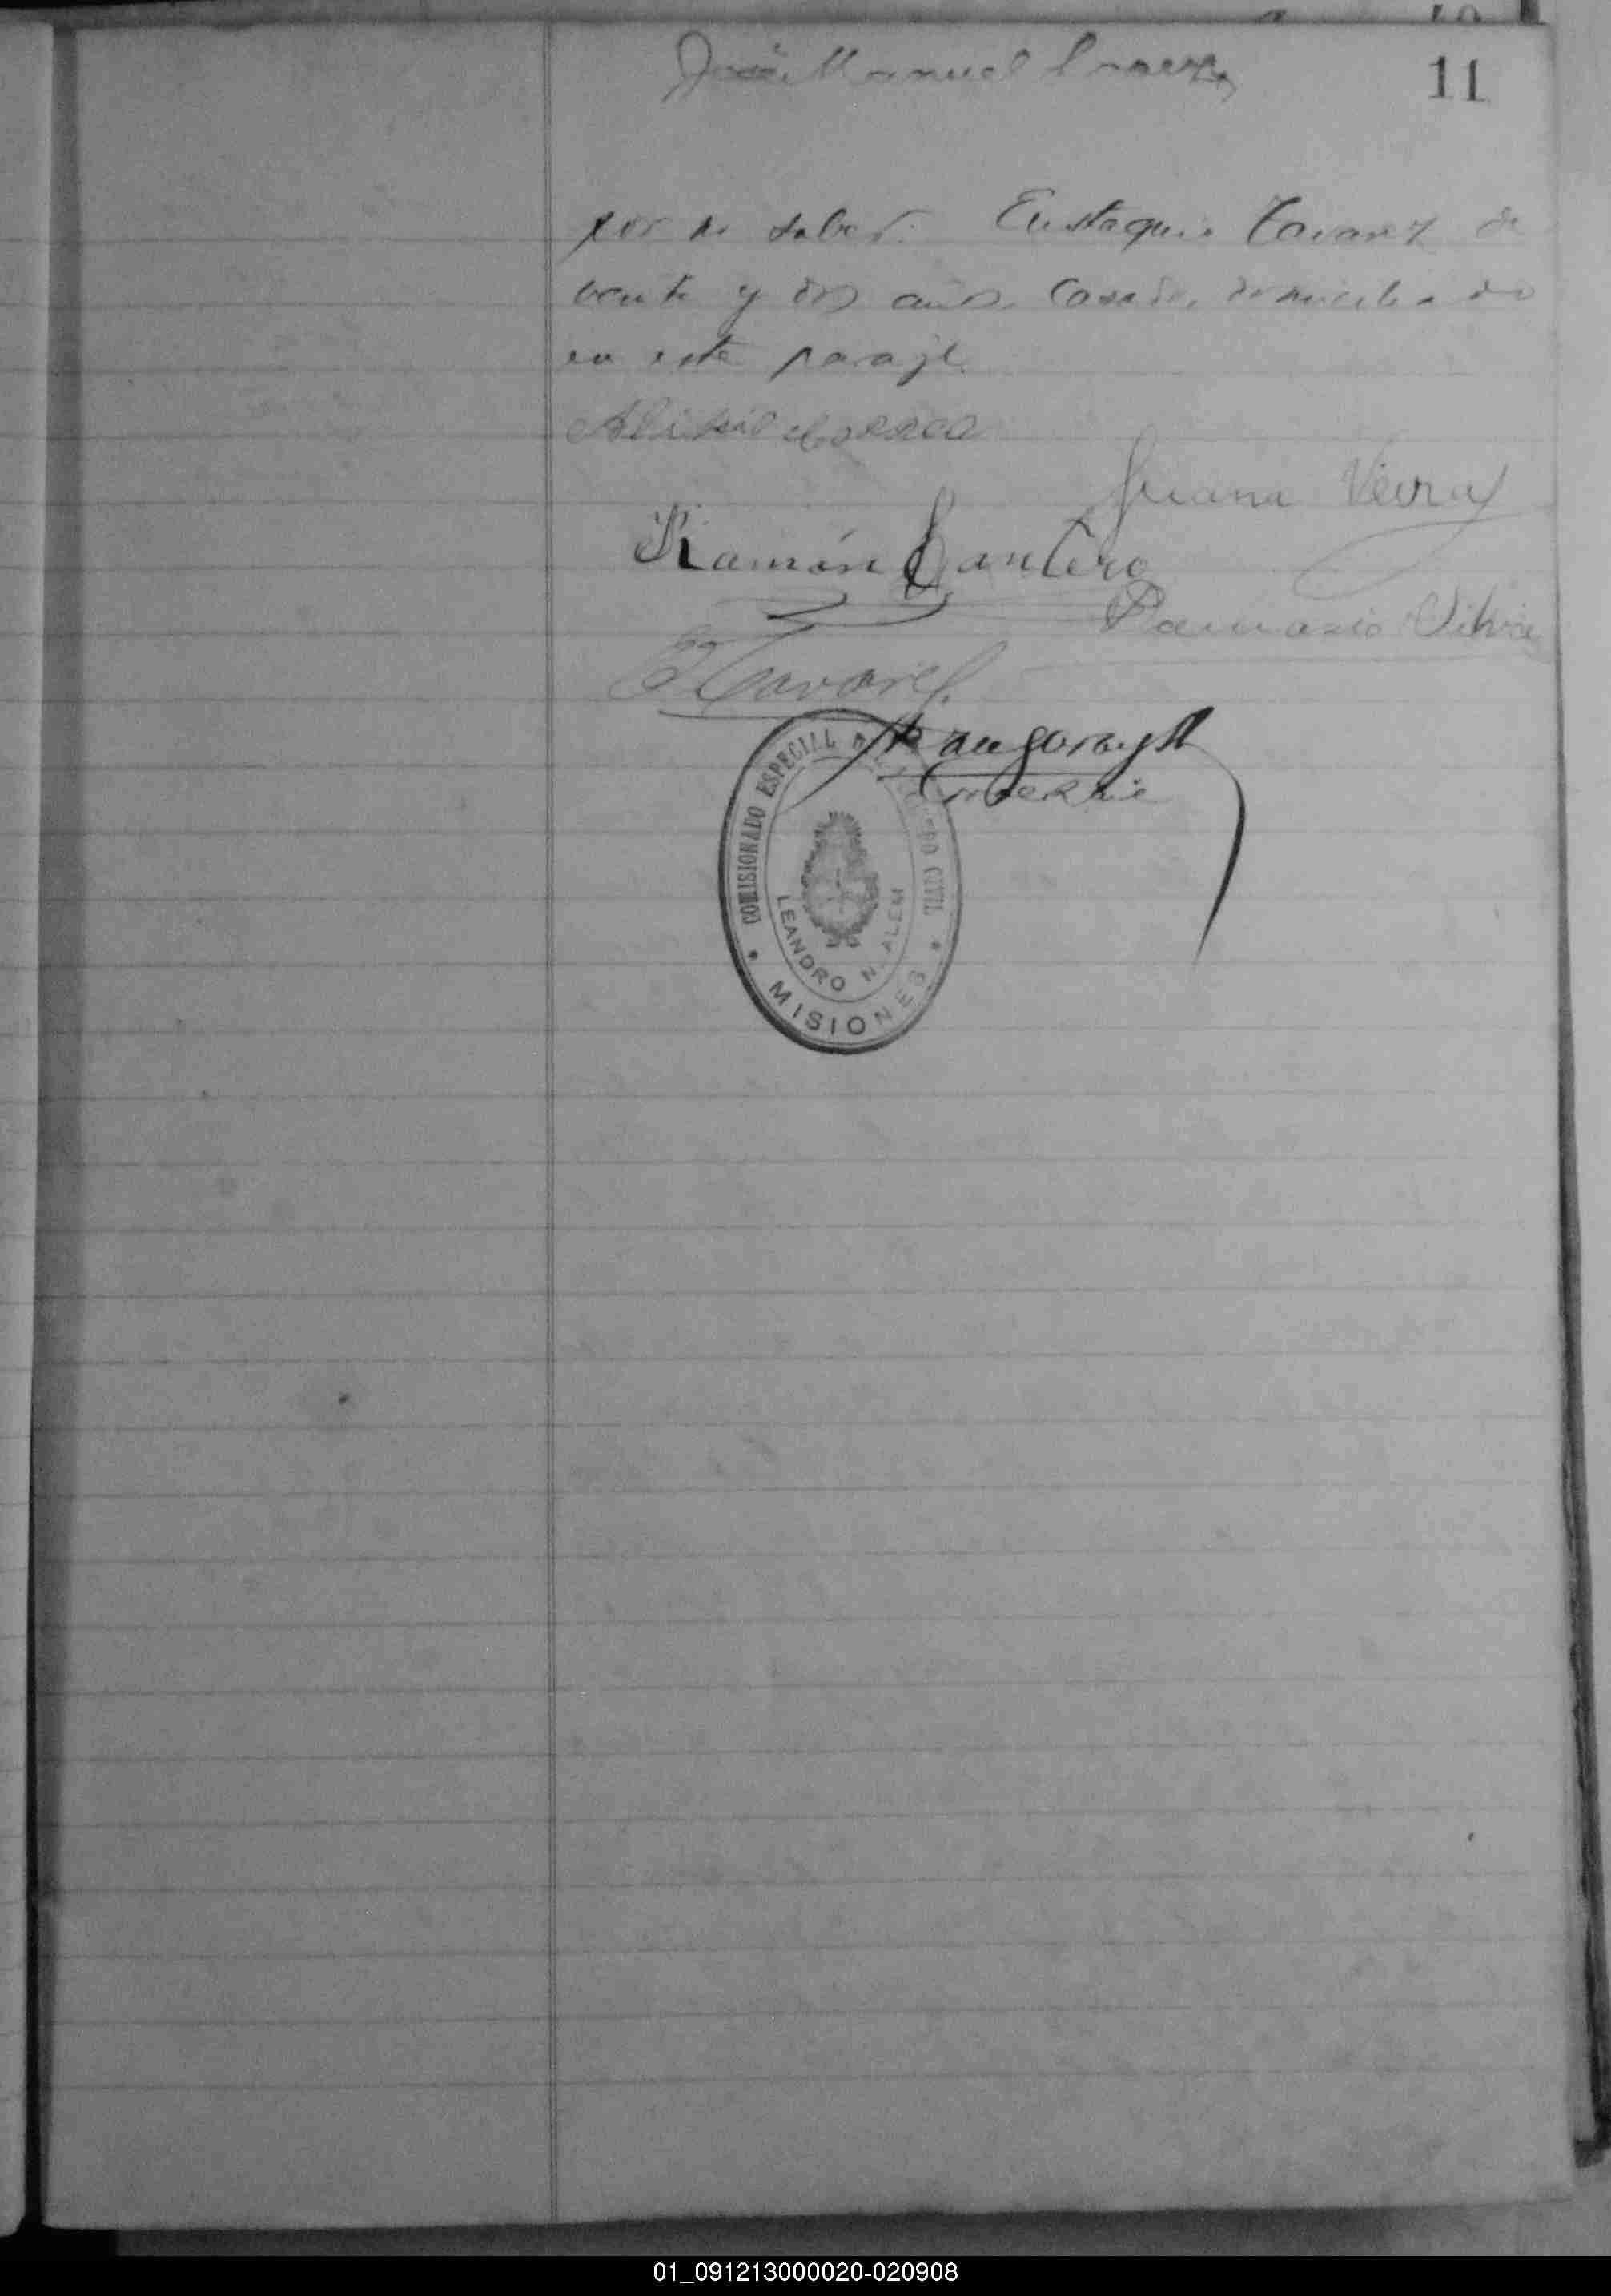 José Manuel
11
por no saber. Eustaquio Tavarez de
veinte y dos años, casado, domiciliado
en este paraje.
Juana Vieira
Ramón Santero
Damasio Silva
E Tavarez
COMISIONADO ESPECIAL REGISTRO CIVIL
LEANDRO N. ALEM
MISIONES
01_091213000020-020908